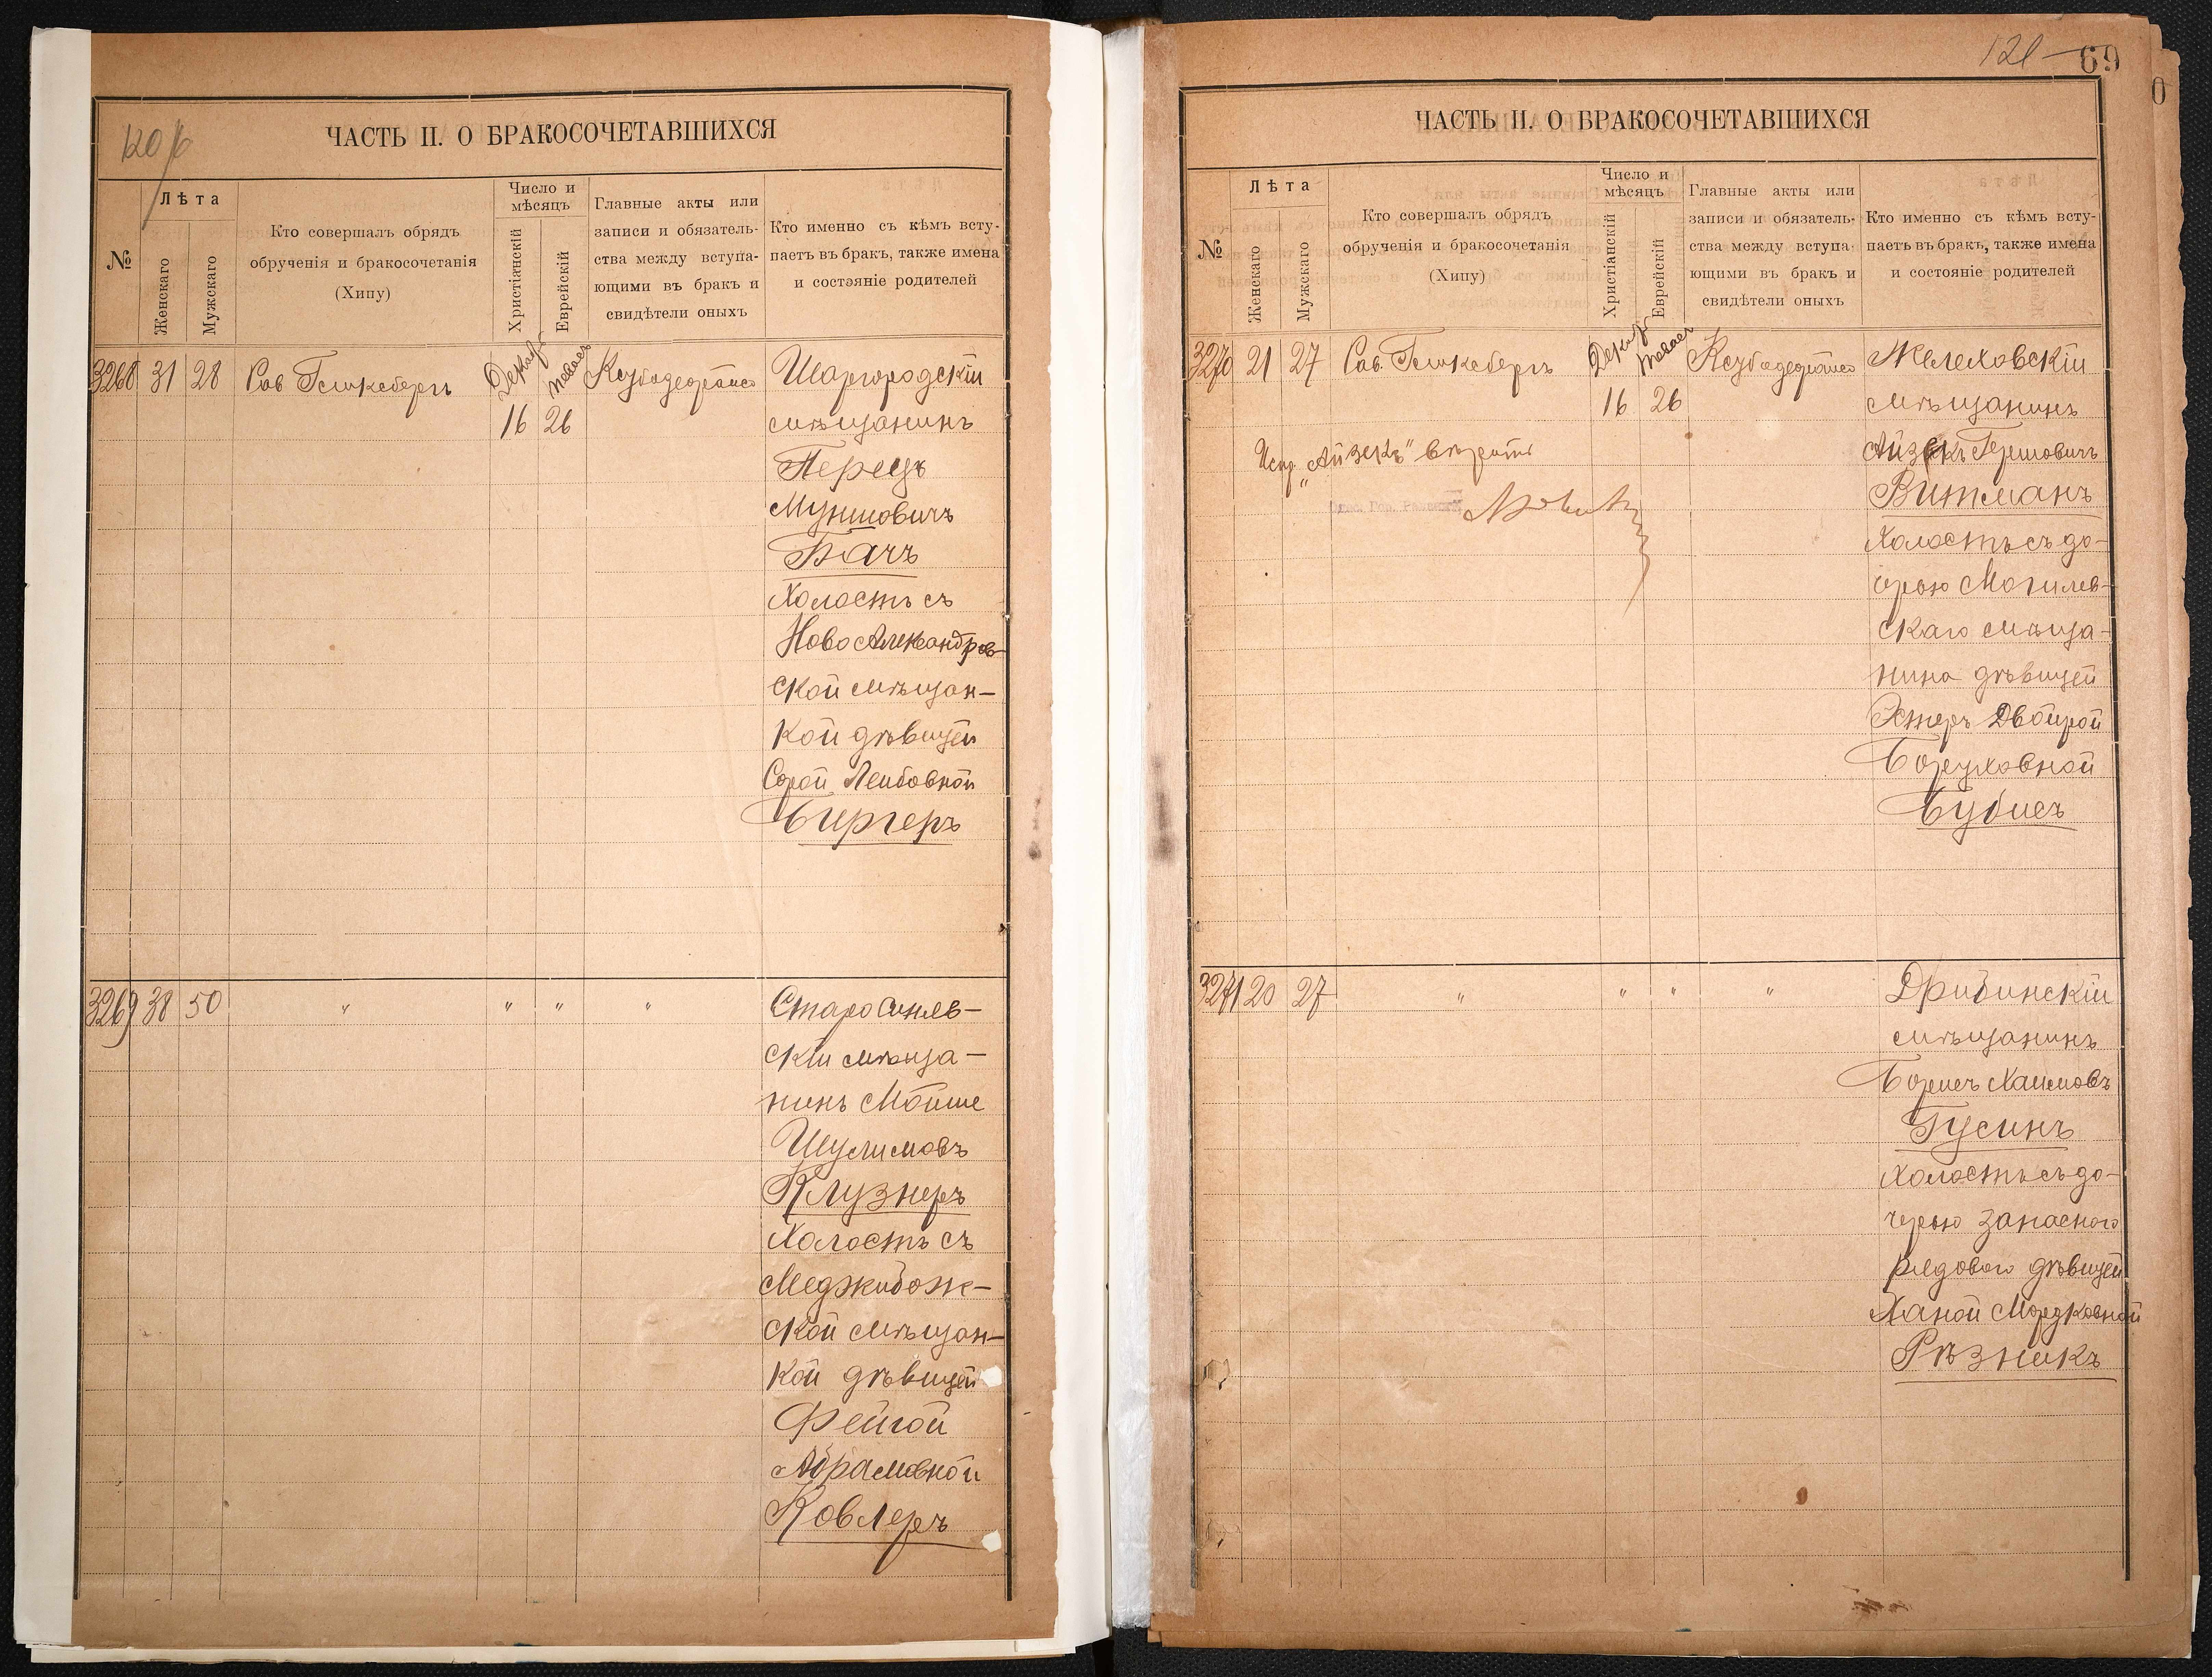 120 /б
ЧАСТЬ II. О БРАКОСОЧЕТАВШИХСЯ
№
Лѣта
Женскаго
Мужскаго
Кто совершалъ обрядъ
обрученія и бракосочетанія
(Хипу)
Число и
мѣсяцъ
Христіанскій
Еврейскій
Главные акты или
записи и обязатель-
ства между вступа-
ющими въ бракъ и
свидѣтели оныхъ
Кто именно съ кѣмъ всту-
паетъ въ бракъ, также имена
и состояніе родителей
3268 31 28
Декаб
16
Тевасъ
26
Шаргородскій
мѣщанинъ
Перецъ
Муншовичъ
Бачъ
Холостъ съ
Ново Александров-
ской мѣщан-
кой дѣвицей
Сурой Лейбовной
Бургеръ
3269 38 50 " " " "
Старо Синяв-
скій мѣща-
нинъ Мойше
Шулимовъ
Клузнеръ
Холостъ съ
Меджибож-
ской мѣщан-
кой дѣвицей
Фейгой
Абрамовной
Ковлеръ
121
69
ЧАСТЬ II. О БРАКОСОЧЕТАВШИХСЯ
№
Лѣта
Женскаго
Мужскаго
Кто совершалъ обрядъ
обрученія и бракосочетанія
(Хипу)
Число и
мѣсяцъ
Христіанскій
Еврейскій
Главные акты или
записи и обязатель-
ства между вступа-
ющими въ бракъ и
свидѣтели оныхъ
Кто именно съ кѣмъ всту-
паетъ въ бракъ, также имена
и состояніе родителей
3270 21 27
Декаб
16
Тевасъ
26
Испр. "Айзекъ" вѣрить
Желеховскій
мѣщанинъ
Айзекъ Гершовичъ
Витманъ
Холостъ съ до-
черью Могилев-
скаго мѣща-
нина дѣвицей
Эстеръ Двойрой
Боруховной
Бубисъ
3271 20 27 " " " "
Дрибинскій
мѣщанинъ
Борисъ Хаимовъ
Гусинъ
Холостъ съ до-
черью запасного
рядового дѣвицей
Ханой Мордковной
Рѣзникъ